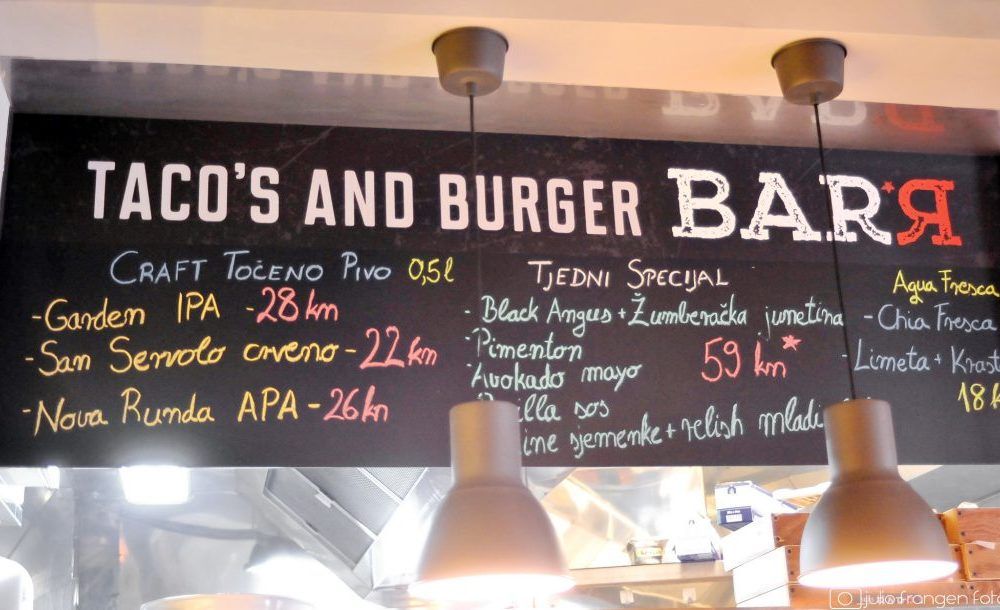 TACO'S AND BURGER BAR*Я
CRAFT TOČENO PIVO 0,5l
-Garden IPA -28 km
-San Servolo crveno-22 km
-Nova Runda APA-26 kn
TJEDNI SPECIJAL
- Black Angus + Žumberačka junetina
- Pimenton
59 km*
- Avokado mayo
sos
sjemenke + relish
Agua Fresca
- Chia Fresca
- Limeta +
18
frangen foto